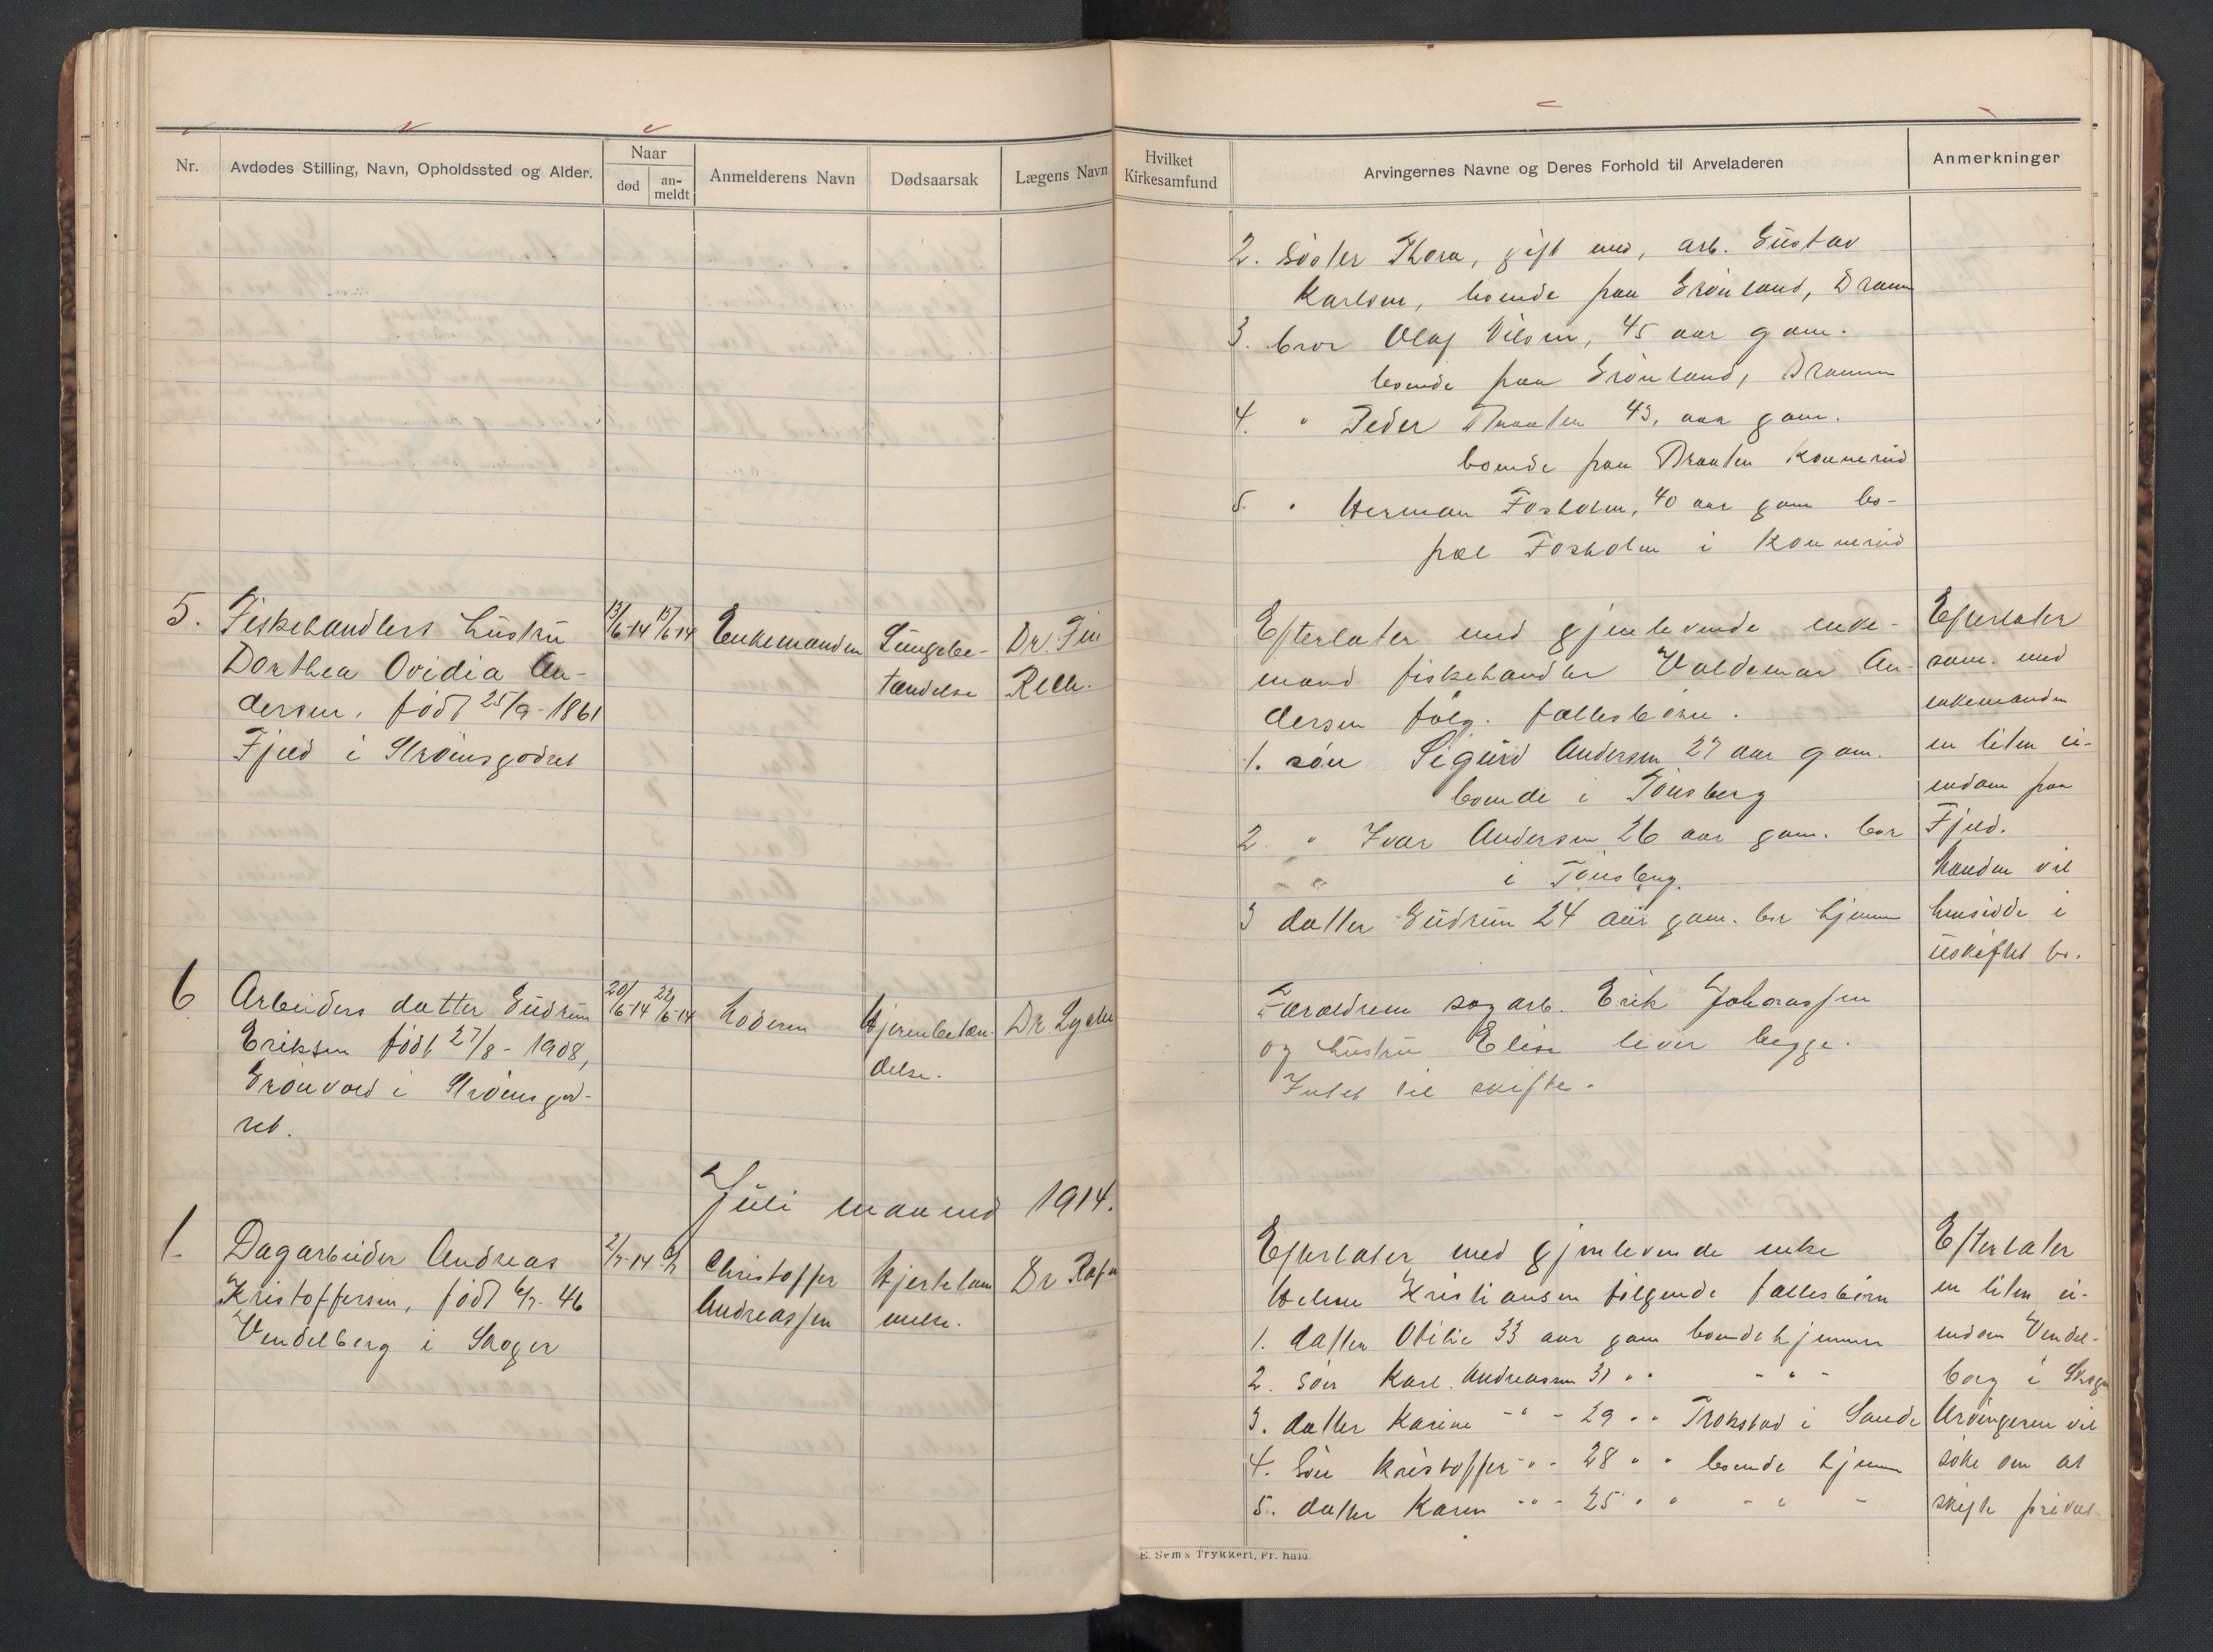 Nr.
Avdødes Stilling, Navn, Opholdssted og Alder.
Naar
død
an-
meldt
Anmelderens Navn
Dødsaarsak
Lægens Navn
5.
Fiskehandlers hustru
Dorthea Ovidia An-
dersen, født 25/9-1861
Fjeld i Strømsgodset
13/6-14
15/6-14
Enkemanden
Lungebe-
tændelse
Dr.
6
Arbeiders datter Gudrun
Eriksen født 27/8-1908,
Grønvold i Strømsgod-
set.
20/6-14
22/6-14
Moderen
Hjernebetæn-
delse.
Dr
Juli maaned 1914.
1.
Dagarbeider Andreas
Kristoffersen, født 6/7-46
Vendelborg i Skoger
2/7-14
6/7
Christoffer
Andreassen
Hjertelam
melse.
Dr
Hvilket
Kirkesamfund
Arvingernes Navne og Deres Forhold til Arveladeren
Anmerkninger
2. Søster Thora, gift med, arb. Gustav
Karlsen, boende paa Grønland, Dramm
3. bror Olaf Nilsen, 45 aar gam.
boende paa Grønland, Drammen
4. " Peder Braaten 43, aar gam.
boende paa Braaten Konnerud
5. " Herman Fosholm, 40 aar gam bo-
pæl Fosholm i Konnerud
Efterlater med gjenlevende enke-
mand fiskehandler Valdemar An-
dersen følg. fællesbørn.
1. søn Sigurd Andersen 27 aar gam.
boende i Tønsberg
2. " Ivar Andersen 26 aar gam. bor
i Tønsberg.
3 datter Gudrun 24 aar gam. bor hjemme
Efterlater
sam. med
enkemanden
en liten ei-
endom paa
Fjeld.
Manden vil
hensidde i
uskiftet bo.
Forældrene sagarb. Erik Johanssen
og hustru Elise lever begge.
Intet til skifte.
Efterlater med gjenlevende enke
Helene Kristiansen følgende fællesbørn
1. datter Otilie 33 aar gam boende hjemme
2. Søn Karl Andreassen 31 " " - " -
3. datter Karine - " - 29 " " Trokstad i Sande
4. Søn Kristoffer - " - 28 " " boende hjemme
5. datter Karen - " - 25 " " - " -
Efterlater
en liten ei-
endom Vendel-
borg i Skoger
Arvingerne vil
søke om at
skifte privat
E. Sem's Trykkeri, Fr.hald.